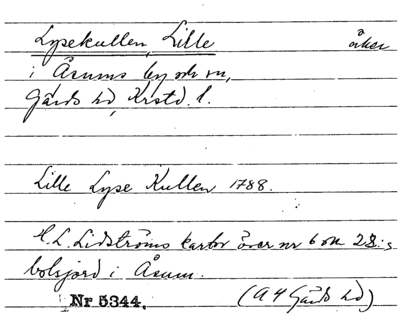 Lysekullen, Lille åker
i Åsums by och sn,
Gärds hd, Krstd. l.
Lille Lyse Kullen 1788.
H. L. Lidströms kartor över nr 6 och 28:s
bolsjord i Åsum.
Nr 5344. (A 4 Gärds hd)